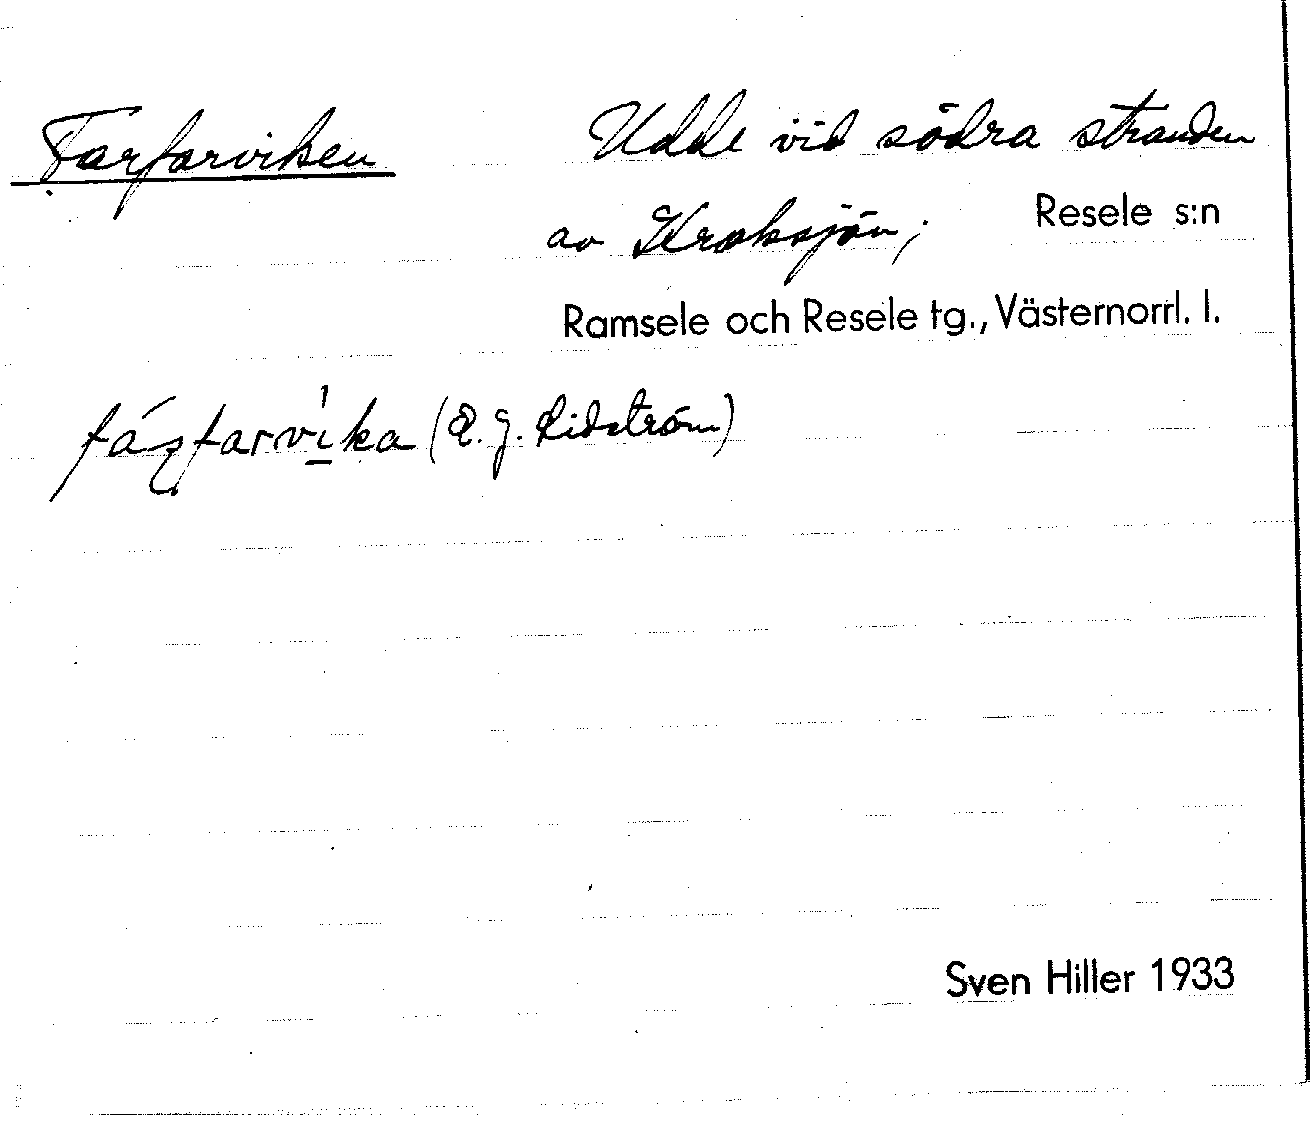 Farfarviken Udde vid södra stranden
av Kroksjön; Resele s:n
Ramsele och Resele tg., Västernorrl. l.
fáɼfarvi̲ka (E. J. Lidström)
Sven Hiller 1933